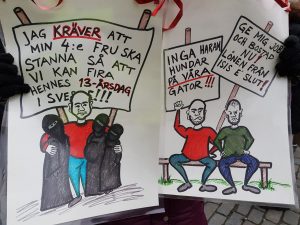 JAG KRÄVER ATT
MIN 4:e FRU SKA
STANNA SÅ ATT
VI KAN FIRA
HENNES 13-ÅRSDAG
I SVERIGE!!!
INGA HARAM
HUNDAR
PÅ VÅRA
GATOR!!!
GE MIG JOBB
OCH BOSTAD
NU!
LÖNEN FRÅN
ISIS E SLUT!